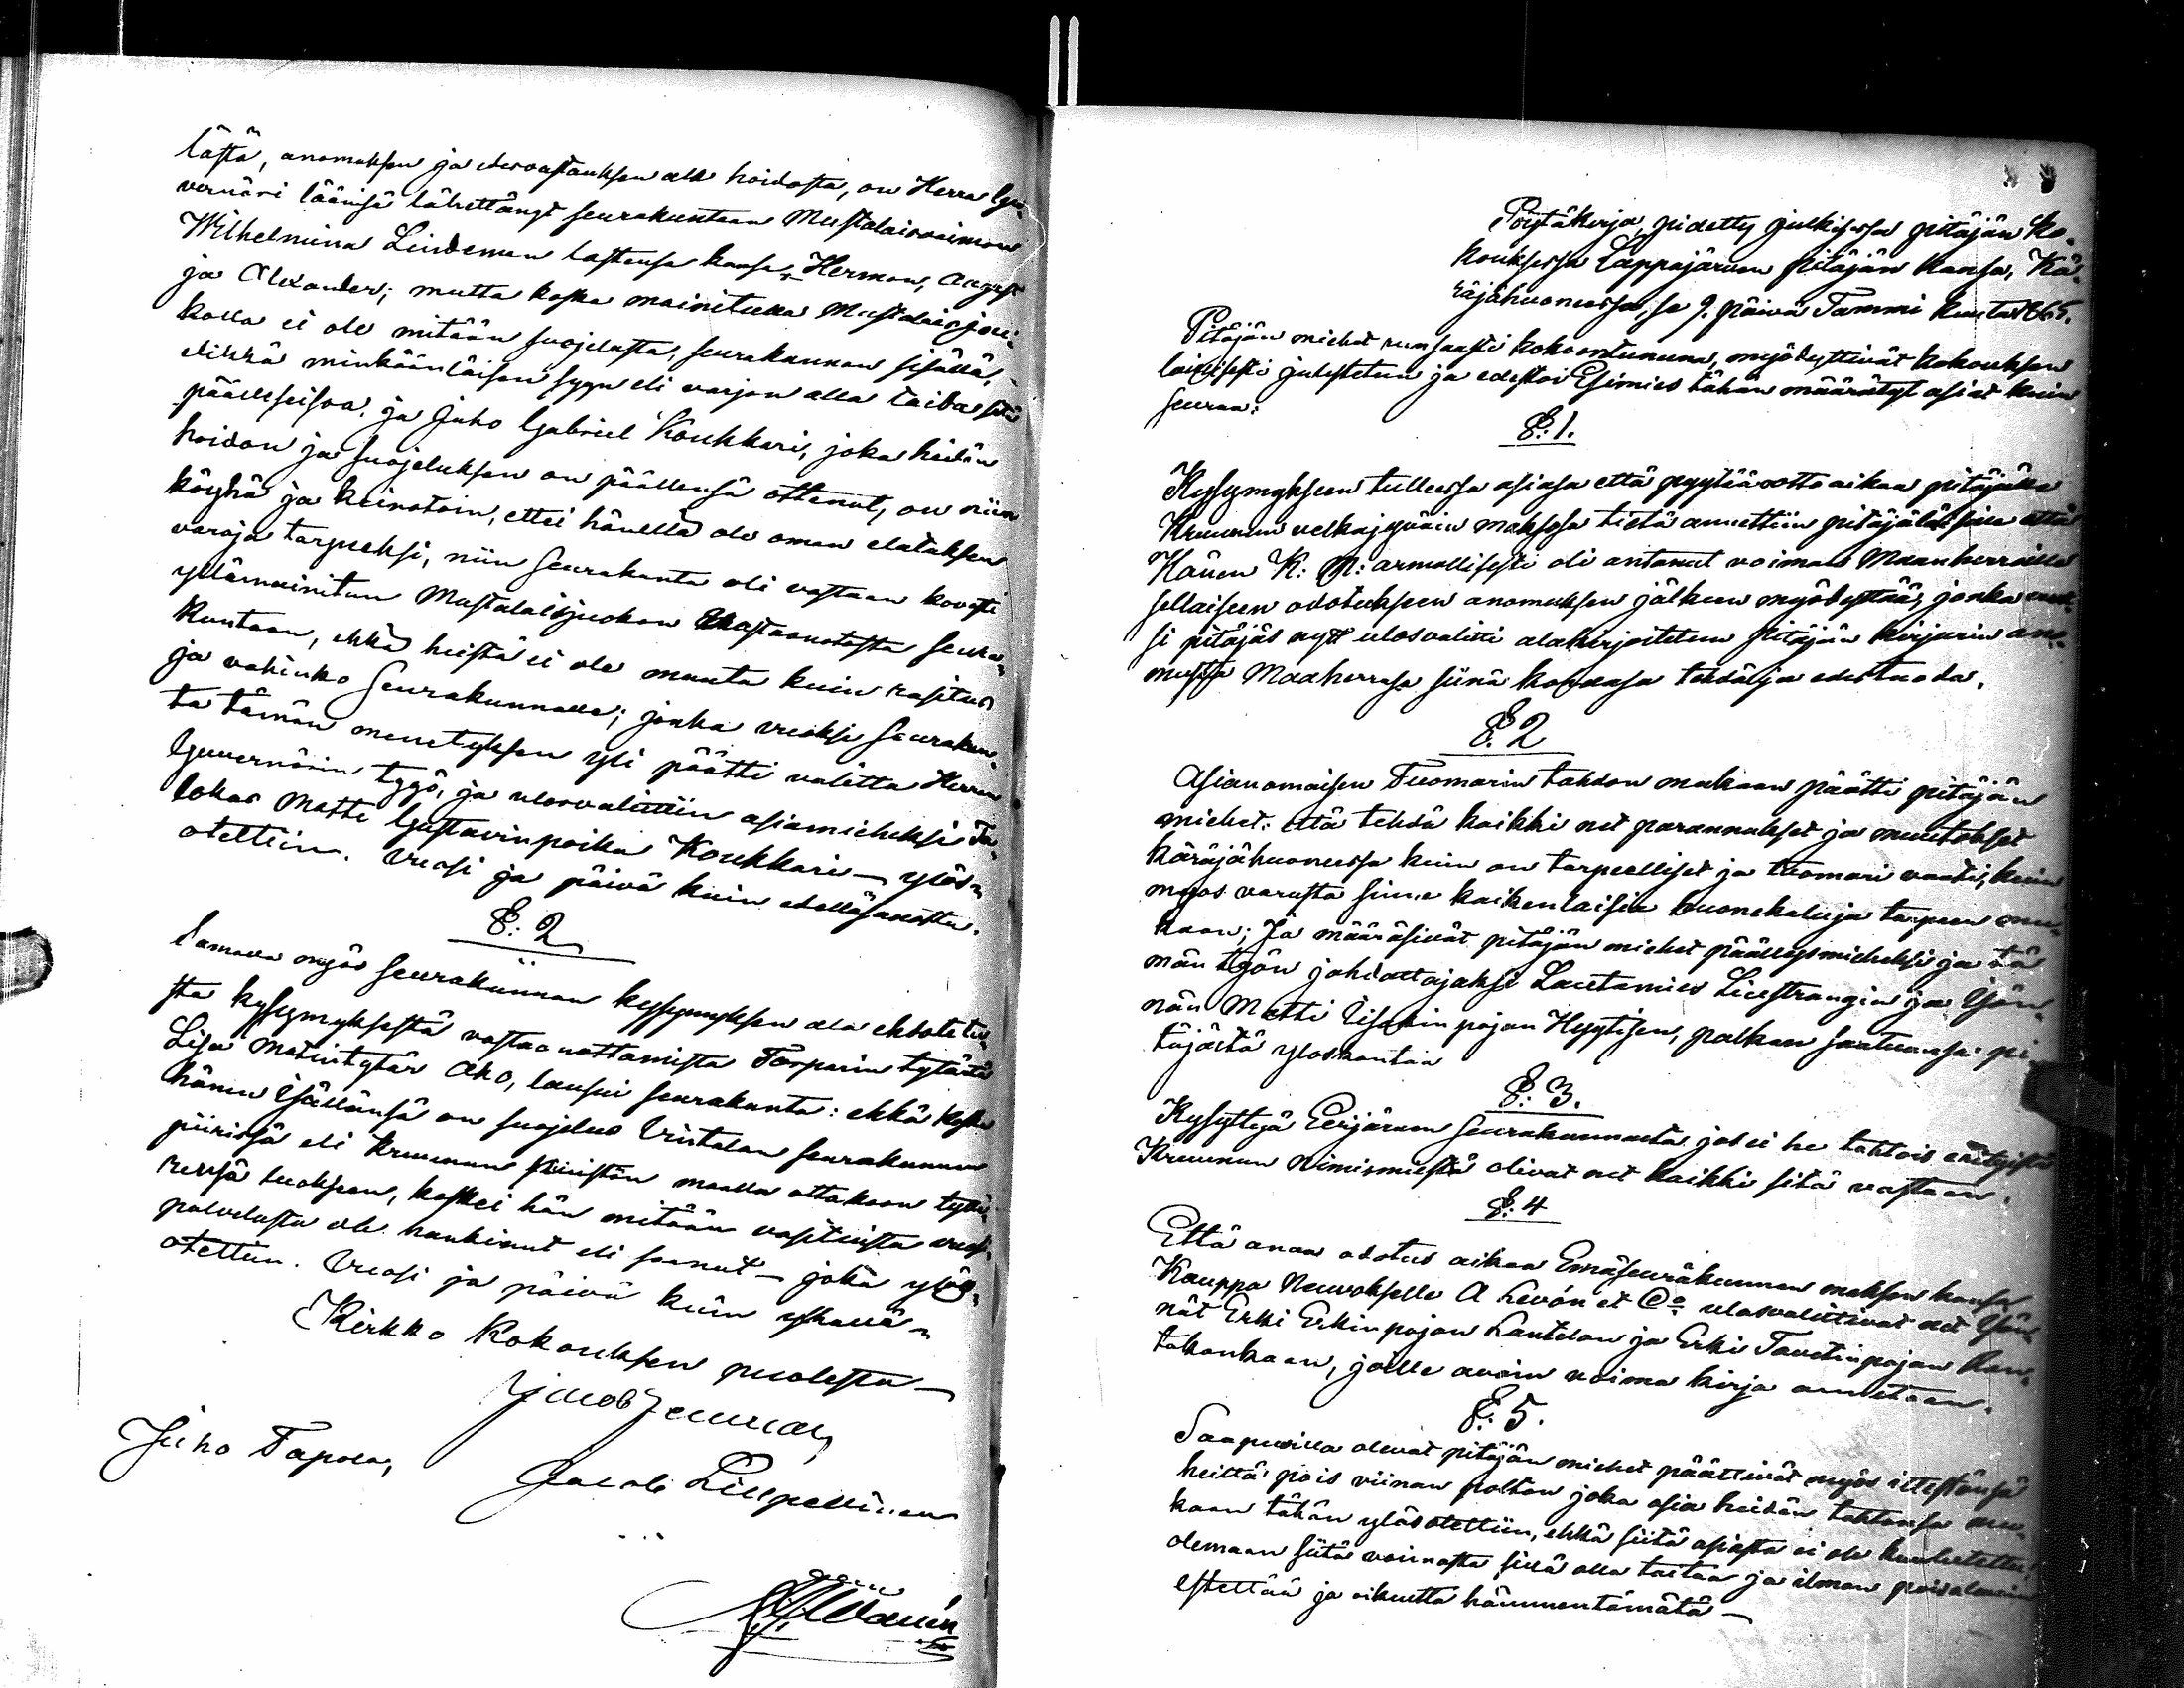 lästä, anomuksen ja edesvastauksen alle hoidosta, on Herra Gu-
vernöri läänisä lähettänyt seurakuntaan Mustalaisvaimon
Wilhelmina Lindeman lastensa kansa, Herman, August
ja Alexander; mutta koska mainitulla Mustalaisjou-
kolla ei ole mitään suojelusta, seurakunnan sisällä,
elikkä minkäänläisen syyn eli varjon alla taida sitä
päälleseisoa, ja Juho Gabriel Koukkari, joka heidän
hoidon ja suojeluksen on päällensä ottanut, on niin
köyhä ja keinotoin, ettei hänellä ole oman elatuksen
varoja tarpeeksi, niin seurakunta oli vastaan kovasti
ylämainitun Mustalaisjoukon vastaanotosta seura-
kuntaan, ehkä heistä ei ole muuta kuin rasitus
ja vahinko Seurakunnalle; jonka vuoksi seurakun-
ta tämän menetyksen yli päätti valitta Herra
Guvernörin tygö, ja ulosvalittiin asiamieheksi Ta-
lokas Matti Gustavinpoika Koukkari – ylös-
otettiin. Vuosi ja päivä kuin edelläsanottu.
§: 2
Samalla myös seurakunnan kysymyksen ala ehdotetu-
sta kysymyksestä vastaanottamista Torparin tytärtä
Lisa Matintytär Aho, lausui seurakunta: ehkä koska
hänen Isällänsä on suojelus Vintalan seurakunnan
piirissä eli kruunun kruistön maalla ottakoon tyttä-
rensä luokseen, koskei hän mitään vasituista vuosi-
palvelusta ole hankinut eli saanut – joka ylös-
otettiin. Vuosi ja päivä kuin ylhällä –
Kirkko Kokouksen puolesta –
Juho Tapola,
Jacob Lillpellinen
Pöytäkirja, pidetty julkisessa pitäjän ko-
kouksessa Lappajärven pitäjän kansa, Kä-
räjähuoneessa, se 9. päivä Tammi kuuta 1865.
Pitäjän miehet runsaasti kokoontununa, myödyttivät kokouksen
laillisesti julistetun ja edestoi Esimies tähän määrätyt asiat kuin
seuraa:
§: 1.
Kysymykseen tulleessa asiasa että pyytää otto aikaa pitäjälle
Kruunun velkajyväin maksosa tietä annettiin pitäjäläisille että
Hänen K: M: armollisesti oli antanut voiman Maanherroille
sellaiseen odotukseen anomuksen jälkeen myödyttää, jonka vuok-
si pitäjäs nyt ulosvalitti alakirjoitetun pitäjän kirjurin ano-
musta Maaherrasa siinä kohdasa tehdä ja edestuoda.
§. 2
Asianomaisen Tuomarin tahdon mukaan päätti pitäjän
miehet: että tehdä kaikki net parannukset ja muutokset
käräjähuoneessa kuin on tarpeelliset ja tuomari vaati, kuin
myös varusta sinne kaikenlaisia huonekaluja tarpeen mu-
kaan; Ja määräsivät pitäjän miehet päällysmieheksi ja tä-
män työn johdattajaksi Lautamies Liestrangin ja Isän-
nän Matti Iisakin pojan Hyytisen, palkan saatuansa pi-
täjästä yloskantaa
§: 3.
Kysyttyä Evijärven seurakunnasta jos ei he tahtois erityistä
Kruunun Nimismiestä olivat net kaikki sitä vastaan.
§: 4
Että anoa odotus aikaa Emäseuräkunnan maksen kansa
Kauppa Neuvokselle A Levón et Co ulosvalittivat net Isän-
nät Erki Erkinpojan Lantelan ja Erki Tavetinpojan Kan-
takankaan, joille avoin voima kirja annetaan.
§: 5.
Saapuvilla olevat pitäjän miehet päättivät myös ittestänsä
heittä pois viinan polton joka asia heidän tahtonsa mu-
kaan tähän ylösotettiin, ehkä siitä asiasta ei ole kuulutettu
olemaan siitä voimasta sillä olla taitaa ja ilman poisolevain
estettää ja oikeutta hämmentämätä –